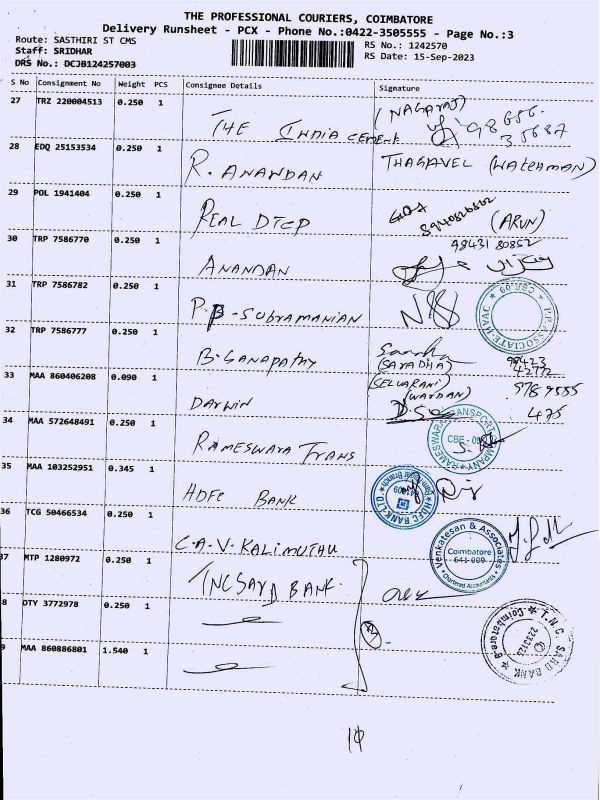 THE PROFESSIONAL COURIERS, COIMBATORE
Delivery Runsheet - PCX - Phone No.:0422-3505555 - Page No.:3
Route: SASTHIRI ST CMS
RS No.: 1242570
Staff: SRIDHAR
RS Date: 15-Sep-2023
DRS No.: DCJB124257003
S No Consignment No Weight PCS Consignee Details Signature
27 TRZ 220004513 0.250 1 THE INDIA CEMENT (NAGARAJ)
28 EDQ 25153534 0.250 1 R. ANANDAN THAGAVEL (WATERMAN)
29 POL 1941404 0.250 1 REAL DTCP (ARUN)
30 TRP 7586770 0.250 1 ANANDAN 98431 80852
31 TRP 7586782 0.250 1 P. SUBRAMANIAN P.P. ASSOCIATE-HVAC CBE-09
32 TRP 7586777 0.250 1 B. GANAPATHY (SARADHA) 98423 42772
33 MAA 860406208 0.090 1 DARWIN (SELVARANI) (WARDAN) 9789555 475
34 MAA 572648491 0.250 1 RAMESWARA TRANS RAMESWARA TRANSPORT COMPANY CBE
35 MAA 103252951 0.345 1 HDFC BANK HDFC BANK LTD.
36 TCG 50466534 0.250 1 C.A.V. KALIMUTHU Venkatesan & Associates Coimbatore 641 009 Chartered Accountants
37 MTP 1280972 0.250 1 TNCSARD BANK
8 OTY 3772978 0.250 1
9 MAA 860886801 1.540 1 T.N.C. SARD BANK Coimbatore